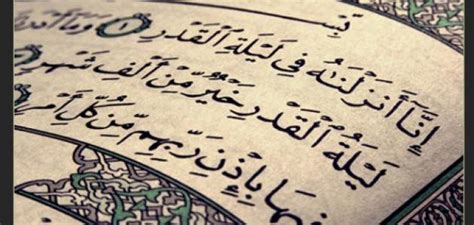 إِنَّآ أَنزَلْنَٰهُ فِى لَيْلَةِ ٱلْقَدْرِ ١ وَمَآ أَدْرَ
لَيْلَةُ ٱلْقَدْرِ خَيْرٌ مِّنْ أَلْفِ شَهْرٍ
فِيهَا بِإِذْنِ رَبِّهِم مِّن كُلِّ أَمْرٍ